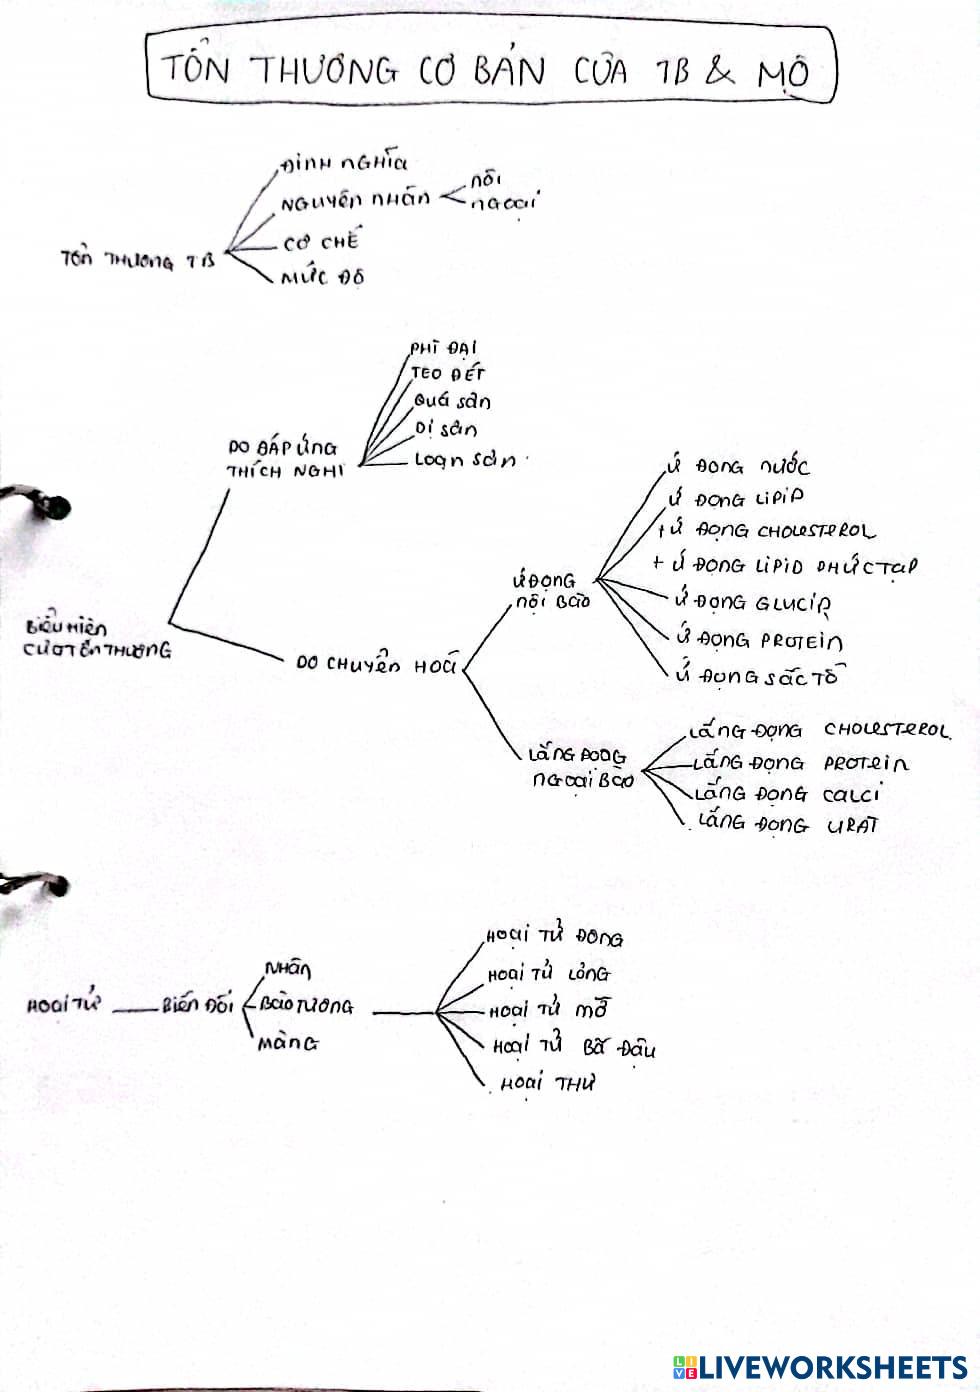 TỔN THƯƠNG CƠ BẢN CỦA TB & MÔ
ĐỊNH NGHĨA
NGUYÊN NHÂN
NỘI
NGOẠI
CƠ CHẾ
MỨC ĐỘ
TỔN THƯƠNG TB
PHÌ ĐẠI
TEO ĐÉT
QUÁ SẢN
DỊ SẢN
LOẠN SẢN
DO ĐÁP ỨNG
THÍCH NGHI
Ứ ĐỌNG NƯỚC
Ứ ĐỌNG LIPIP
+ Ứ ĐỌNG CHOLESTEROL
+ Ứ ĐỌNG LIPID PHỨC TẠP
Ứ ĐỌNG GLUCID
Ứ ĐỌNG PROTEIN
Ứ ĐỌNG SẮC TỐ
Ứ ĐỌNG
NỘI BÀO
BIỂU HIỆN
CỦA TỔN THƯƠNG
DO CHUYỂN HOÁ
LẮNG ĐỌNG
NGOẠI BÀO
LẮNG ĐỌNG CHOLESTEROL
LẮNG ĐỌNG PROTEIN
LẮNG ĐỌNG CALCI
LẮNG ĐỌNG URAT
HOẠI TỬ
BIẾN ĐỔI
NHÂN
BÀO TƯƠNG
MÀNG
HOẠI TỬ ĐÔNG
HOẠI TỬ LỎNG
HOẠI TỬ MỠ
HOẠI TỬ BÃ ĐẬU
HOẠI THƯ
LIVEWORKSHEETS